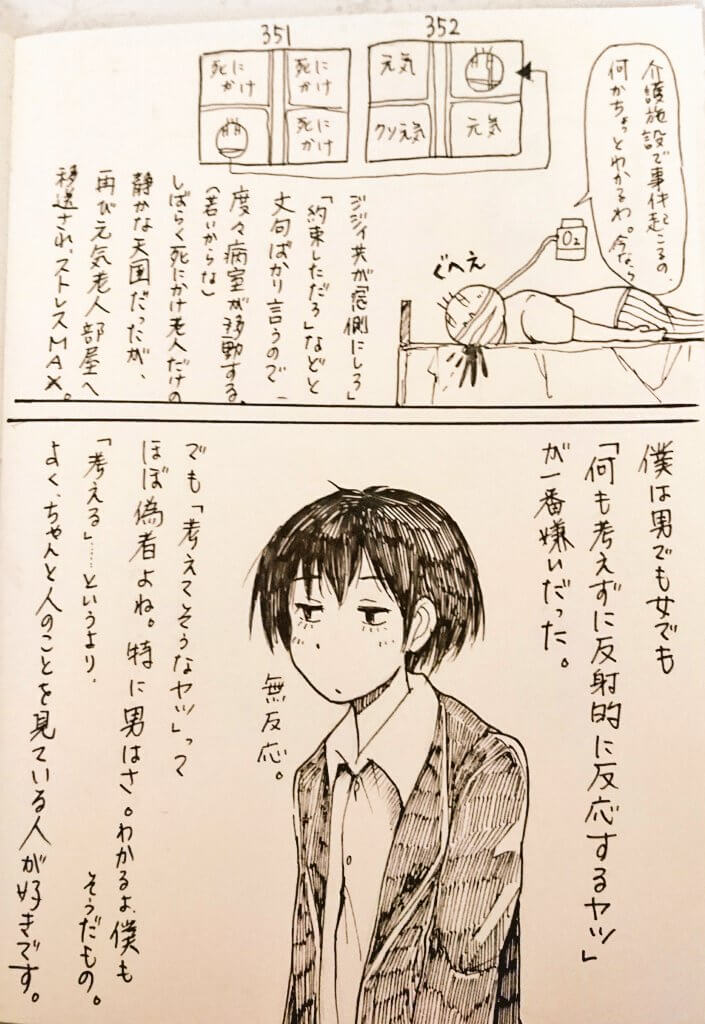 介護施設で事件起こるの、
何かちょっとわかるわ。今なら
O₂
ぐへえ
352
元気
クソ元気
元気
351
死に
かけ
死に
かけ
死に
かけ
ジジイ共が「窓側にしろ」
「約束しただろ」などと
文句ばかり言うので、
度々病室が移動する。
(若いからな)
しばらく死にかけ老人だけの
静かな天国だったが、
再び元気老人部屋へ
移送され、ストレスMAX。
僕は男でも女でも
「何も考えずに反射的に反応するヤツ」
が一番嫌いだった。
無反応。
でも「考えてそうなヤツ」って
ほぼ偽者よね。特に男はさ。わかるよ、僕も
そうだもの。
「考える」……というより、
よく、ちゃんと人のことを見ている人が好きです。